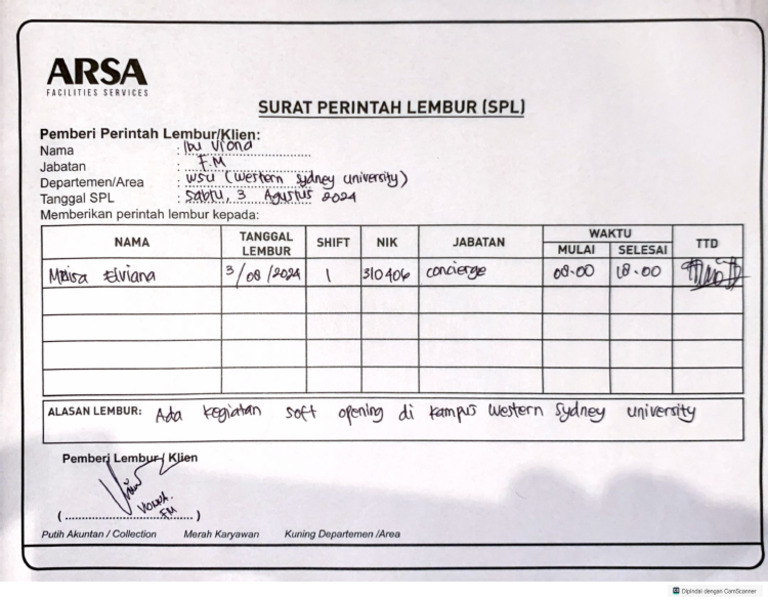 ARSA
FACILITIES SERVICES
SURAT PERINTAH LEMBUR (SPL)
Pemberi Perintah Lembur/Klien:
Nama : Ibu Viona
Jabatan : F.M
Departemen/Area : WSU (Western Sydney University)
Tanggal SPL : Sabtu, 3 Agustus 2024
Memberikan perintah lembur kepada:
NAMA TANGGAL LEMBUR SHIFT NIK JABATAN WAKTU MULAI SELESAI TTD
Elviana 3/08/2024 1 310406 concierge 08.00 18.00
ALASAN LEMBUR: Ada kegiatan soft opening di kampus Western Sydney University
Pemberi Lembur / Klien
VIONA.
FM
(................................)
Putih Akuntan / Collection Merah Karyawan Kuning Departemen /Area
Dipindai dengan CamScanner